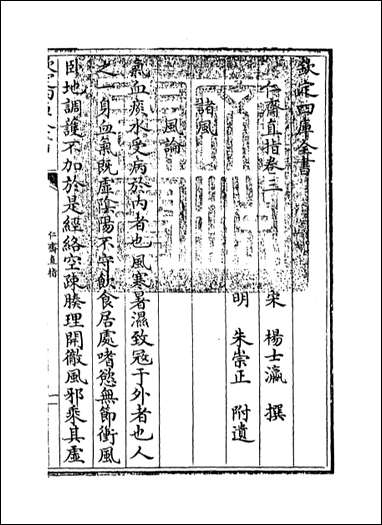 欽定四庫全書
仁齋直指卷三
宋 楊士瀛 撰
明 朱崇正 附遺
諸風
風論
氣血痰水受病於内者也風寒暑濕致寇于外者也人
之一身血氣既虛陰陽不守飲食居處嗜慾無節衝風
卧地調護不加於是經絡空疎腠理開徹風邪乘其虛
仁齋直指